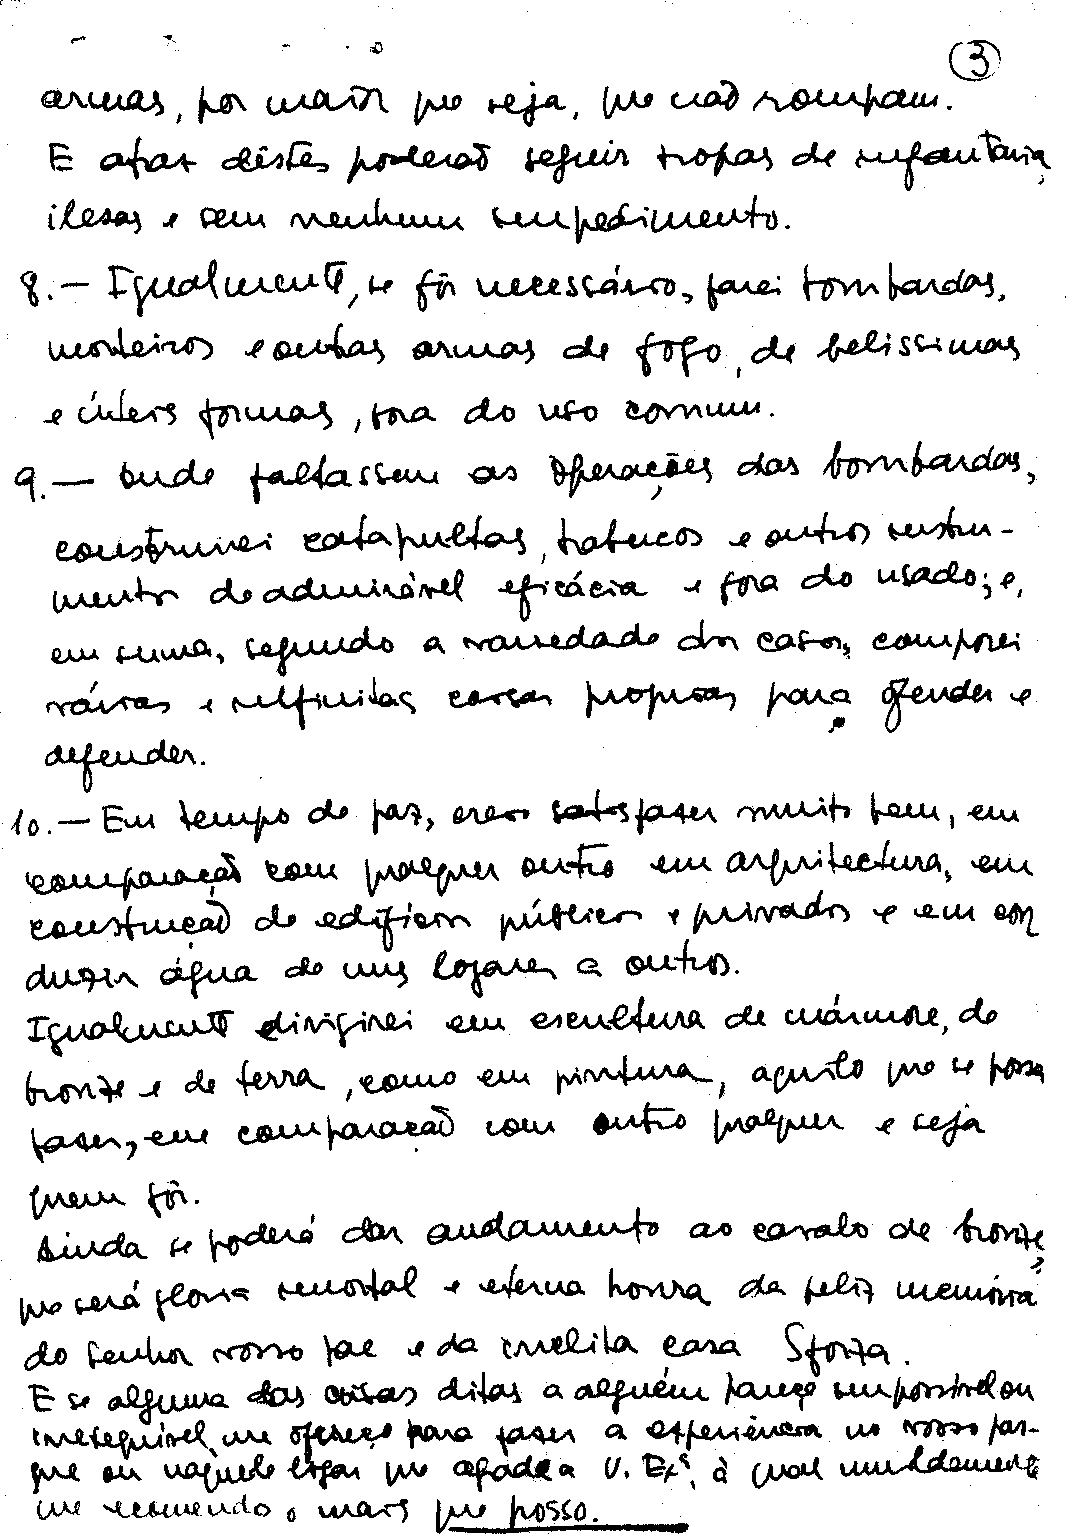 3
armas, por maior que seja, que não rompam.
E atás dêstes poderão seguir tropas de infantaria,
ilesas e sem nenhum impedimento.
8. — Igualmente, se fôr necessário, farei bombardas,
morteiros e outras armas de fogo, de belissimas
e úteis formas, fora do uso comum.
9. — Onde faltassem as operações das bombardas,
construirei catapultas, trabucos e outros instru-
mentos de admirável eficácia e fora do usado; e,
em suma, segundo a variedade dos casos, comporei
várias e infinitas coisas proprias para ofender e
defender.
10. — Em tempo de paz, creio satisfazer muito bem, em
comparação com qualquer outro em arquitectura, em
construção de edificios públicos e privados e em con
duzir água de uns logares a outros.
Igualmente dirigirei em escultura de mármore, de
bronze e de terra, como em pintura, aquilo que se possa
fazer, em comparação com outro qualquer e seja
quem fôr.
Ainda se poderá dar andamento ao cavalo de bronze,
que será gloria imortal e eterna honra da feliz memória
do Senhor vosso pae e da inclita casa Sforza.
E se alguma das coisas ditas a alguém pareçe impossivel ou
inexequivel, me ofereço para fazer a experiência no vosso par-
que ou naquele logar que agrade a V. Exª, à qual humildemente
me recomendo o mais que posso.